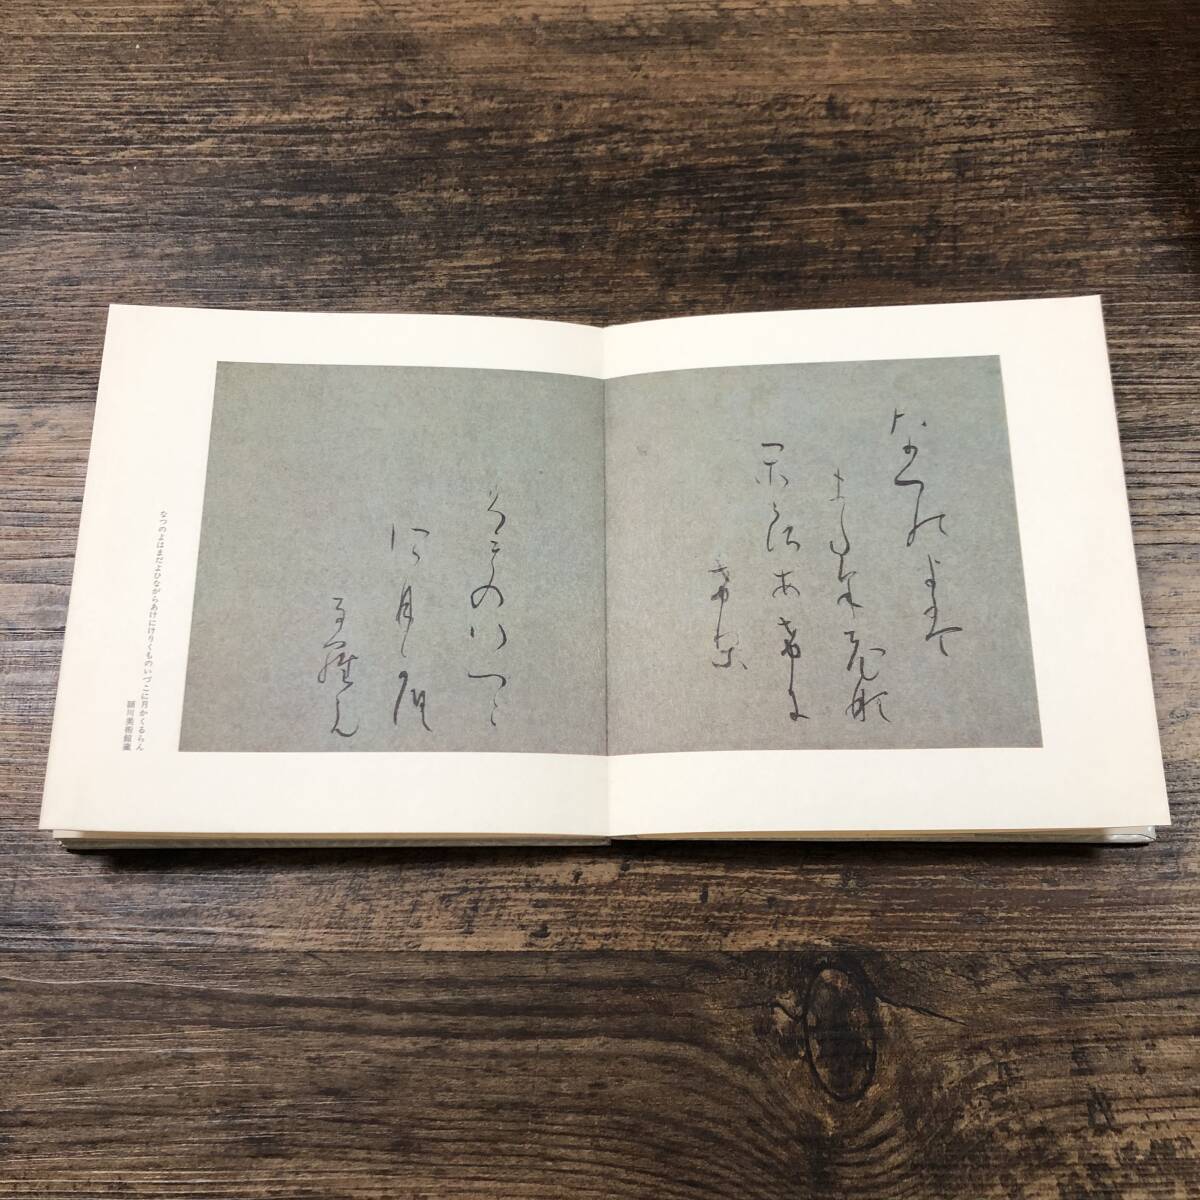 なつのよは
またよひな
からあけに
けり
くものいつこ
に月かく
るらん
なつのよはまだよひながらあけにけりくものいづこに月かくるらん
頴川美術館蔵